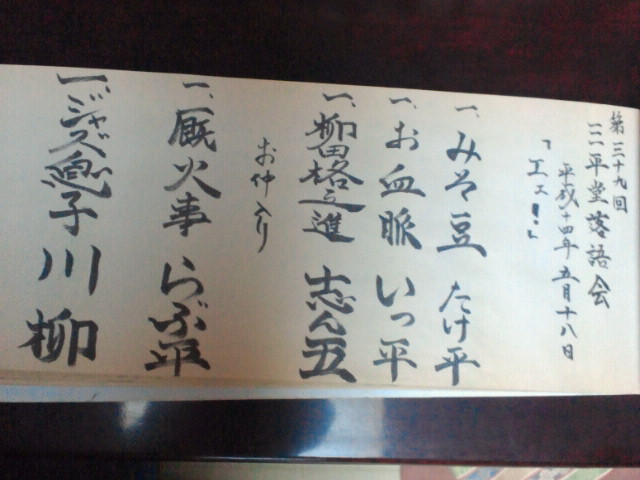 第三十九回
三平堂落語会
平成十四年五月十八日
「エェ!」
一、みそ豆 たけ平
一、お血脈 いっ平
一、柳田格之進 志ん五
お仲入り
一、厩火事 らぶ平
一、ジャズ息子 川柳